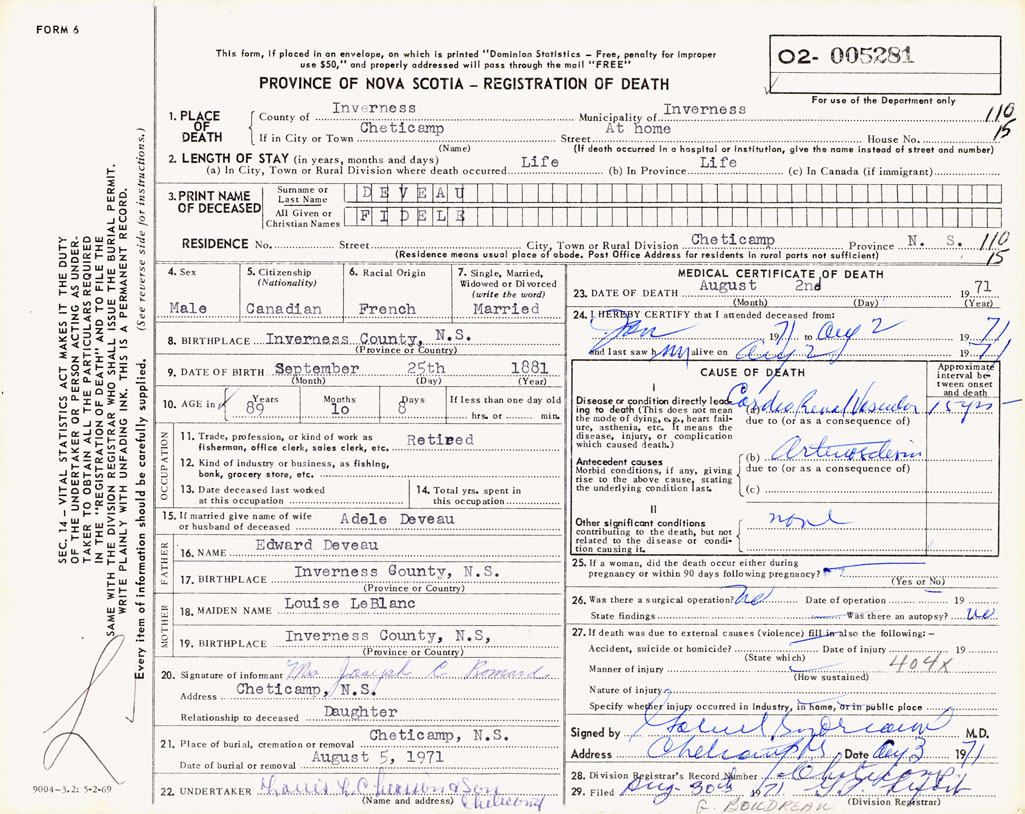 FORM 6
This form, if placed in an envelope, on which is printed "Dominion Statistics – Free, penalty for improper
use $50," and properly addressed will pass through the mail "FREE"
O2- 005281
PROVINCE OF NOVA SCOTIA – REGISTRATION OF DEATH
For use of the Department only
1. PLACE OF DEATH
County of Inverness Municipality of Inverness 110
If in City or Town Cheticamp Street At home House No. 15
(Name) (If death occurred in a hospital or institution, give the name instead of street and number)
2. LENGTH OF STAY (in years, months and days)
(a) In City, Town or Rural Division where death occurred Life (b) In Province Life (c) In Canada (if immigrant)
3. PRINT NAME OF DECEASED
Surname or Last Name DEVEAU
All Given or Christian Names FIDELE
RESIDENCE No. Street City, Town or Rural Division Cheticamp Province N. S. 110
(Residence means usual place of abode. Post Office Address for residents in rural parts not sufficient) 15
4. Sex
Male
5. Citizenship
(Nationality)
Canadian
6. Racial Origin
French
7. Single, Married,
Widowed or Divorced
(write the word)
Married
8. BIRTHPLACE Inverness County, N.S.
(Province or Country)
9. DATE OF BIRTH September 25th 1881
(Month) (Day) (Year)
10. AGE in Years Months Days If less than one day old
89 10 8 hrs. or min.
OCCUPATION
11. Trade, profession, or kind of work as
fishermen, office clerk, sales clerk, etc. Retired
12. Kind of industry or business, as fishing,
bank, grocery store, etc.
13. Date deceased last worked
at this occupation
14. Total yrs. spent in
this occupation
15. If married give name of wife
or husband of deceased Adele Deveau
FATHER
16. NAME Edward Deveau
17. BIRTHPLACE Inverness County, N.S.
(Province or Country)
MOTHER
18. MAIDEN NAME Louise LeBlanc
19. BIRTHPLACE Inverness County, N.S,
(Province or Country)
20. Signature of informant Mrs Joseph C. Romard
Address Cheticamp, N.S.
Relationship to deceased Daughter
21. Place of burial, cremation or removal Cheticamp, N.S.
Date of burial or removal August 5, 1971
22. UNDERTAKER & Son
(Name and address)
MEDICAL CERTIFICATE OF DEATH
23. DATE OF DEATH August 2nd 1971
(Month) (Day) (Year)
24. I HEREBY CERTIFY that I attended deceased from:
Jan 1971 to Aug 2 1971
and last saw him alive on Aug 2 1971
CAUSE OF DEATH
Approximate
interval be-
tween onset
and death
I
Disease or condition directly lead-
ing to death (This does not mean
the mode of dying, e.g., heart fail-
ure, asthenia, etc. It means the
disease, injury, or complication
which caused death.)
(a) Cardio Renal Vascular 15 yrs
due to (or as a consequence of)
Antecedent causes
Morbid conditions, if any, giving
rise to the above cause, stating
the underlying condition last.
(b)
due to (or as a consequence of)
(c)
II
Other significant conditions
contributing to the death, but not
related to the disease or condi-
tion causing it.
none
25. If a woman, did the death occur either during
pregnancy or within 90 days following pregnancy?
(Yes or No)
26. Was there a surgical operation? No Date of operation 19
State findings Was there an autopsy? No
27. If death was due to external causes (violence) fill in also the following: –
Accident, suicide or homicide? Date of injury 19
(State which) 404X
Manner of injury
(How sustained)
Nature of injury
Specify whether injury occurred in Industry, in home, or in public place
Signed by M.D.
Address Cheticamp Date Aug 3 1971
28. Division Registrar's Record Number
29. Filed Aug. 30th 1971
G. BOUDREAU (Division Registrar)
SEC. 14 – VITAL STATISTICS ACT MAKES IT THE DUTY
OF THE UNDERTAKER OR PERSON ACTING AS UNDER-
TAKER TO OBTAIN ALL THE PARTICULARS REQUIRED
IN THE "REGISTRATION OF DEATH" AND TO FILE THE
SAME WITH THE DIVISION REGISTRAR WHO SHALL ISSUE THE BURIAL PERMIT.
WRITE PLAINLY WITH UNFADING INK. THIS IS A PERMANENT RECORD.
Every item of information should be carefully supplied. (See reverse side for instructions.)
9004-3.2: 5-2-69